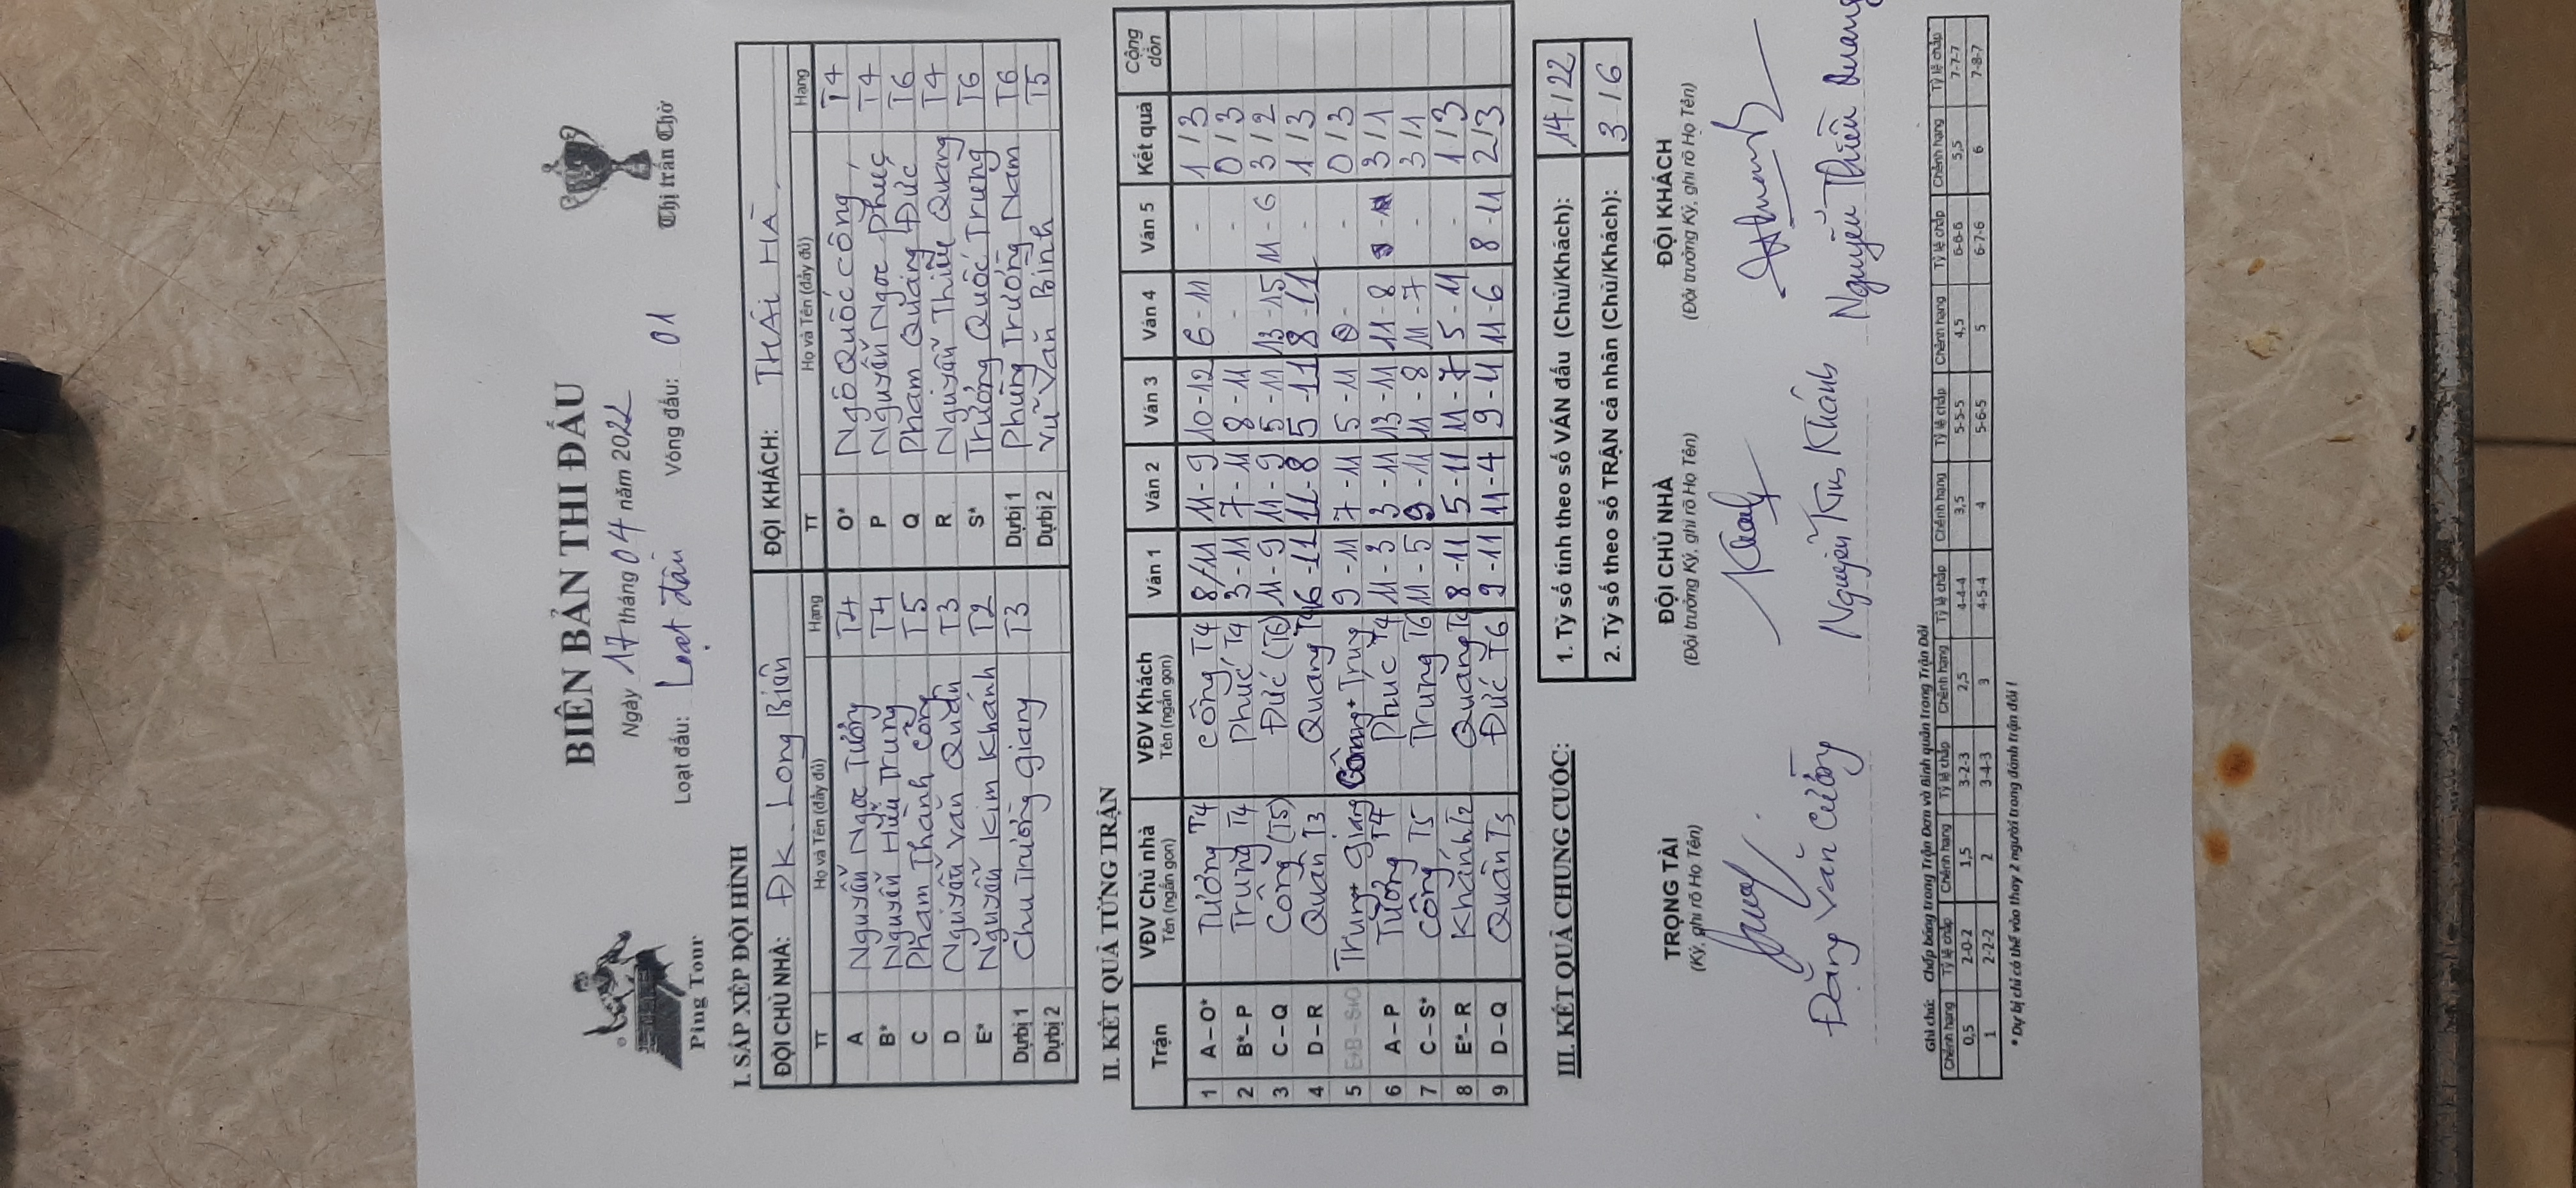 BIÊN BẢN THI ĐẤU
Ngày 17 tháng 04 năm 2022
Loạt đấu: Loạt đấu Vòng đấu: 01
Ping Tour
Thị trấn Chờ
I. SẮP XẾP ĐỘI HÌNH
ĐỘI CHỦ NHÀ: ĐK. Long Biên ĐỘI KHÁCH: THÁI HÀ
TT Họ và Tên (đầy đủ) Hạng TT Họ và Tên (đầy đủ) Hạng
A Nguyễn Ngọc Tưởng T4 O* Ngô Quốc Công T4
B* Nguyễn Hữu Trung T4 P Nguyễn Ngọc Phúc T4
C Phạm Thành Công T5 Q Phạm Quang Đức T6
D Nguyễn Văn Quân T3 R Nguyễn Thiều Quang T4
E* Nguyễn Kim Khánh T2 S* Trương Quốc Trung T6
Dự bị 1 Chu Trường Giang T3 Dự bị 1 Phùng Trường Nam T6
Dự bị 2 Dự bị 2 Vũ Văn Bình T5
II. KẾT QUẢ TỪNG TRẬN
Trận VĐV Chủ nhà Tên (ngắn gọn) VĐV Khách Tên (ngắn gọn) Ván 1 Ván 2 Ván 3 Ván 4 Ván 5 Kết quả Cộng dồn
1 A – O* Tưởng T4 Công T4 8/11 11 - 9 10 - 12 6 - 11 - 1 / 3
2 B* – P Trung T4 Phúc T4 3 - 11 7 - 11 8 - 11 - 0 / 3
3 C – Q Công (T5) Đức (T6) 11 - 9 11 - 9 5 - 11 13 - 15 11 - 6 3 / 2
4 D – R Quân T3 Quang T4 6 - 11 11 - 8 5 - 11 8 - 11 - 1 / 3
5 Trung+ Giang Công+ Trung 9 - 11 7 - 11 5 - 11 - - 0 / 3
6 A – P Tưởng T4 Phúc T4 11 - 3 3 - 11 13 - 11 11 - 8 - 3 / 1
7 C – S* Công T5 Trung T6 11 - 5 9 - 11 11 - 8 11 - 7 - 3 / 1
8 E* – R Khánh T2 Quang T4 8 - 11 5 - 11 11 - 7 5 - 11 - 1 / 3
9 D – Q Quân T3 Đức T6 9 - 11 11 - 4 9 - 11 11 - 6 8 - 11 2 / 3
III. KẾT QUẢ CHUNG CUỘC:
1. Tỷ số tính theo số VÁN đấu (Chủ/Khách): 14 / 22
2. Tỷ số theo số TRẬN cá nhân (Chủ/Khách): 3 / 6
TRỌNG TÀI ĐỘI CHỦ NHÀ ĐỘI KHÁCH
(Ký, ghi rõ Họ Tên) (Đội trưởng Ký, ghi rõ Họ Tên) (Đội trưởng Ký, ghi rõ Họ Tên)
Đặng Văn Cường Nguyễn Kim Khánh Nguyễn Thiều Quang
Ghi chú: Chấp bóng trong Trận Đơn và Bình quân trong Trận Đôi
Chênh hạng Tỷ lệ chấp Chênh hạng Tỷ lệ chấp Chênh hạng Tỷ lệ chấp Chênh hạng Tỷ lệ chấp Chênh hạng Tỷ lệ chấp Chênh hạng Tỷ lệ chấp
0,5 2-0-2 1,5 3-2-3 2,5 4-4-4 3,5 5-5-5 4,5 6-6-6 5,5 7-7-7
1 2-2-2 2 3-4-3 3 4-5-4 4 5-6-5 5 6-7-6 6 7-8-7
* Dự bị chỉ có thể vào thay 2 người trong đánh trận đôi !